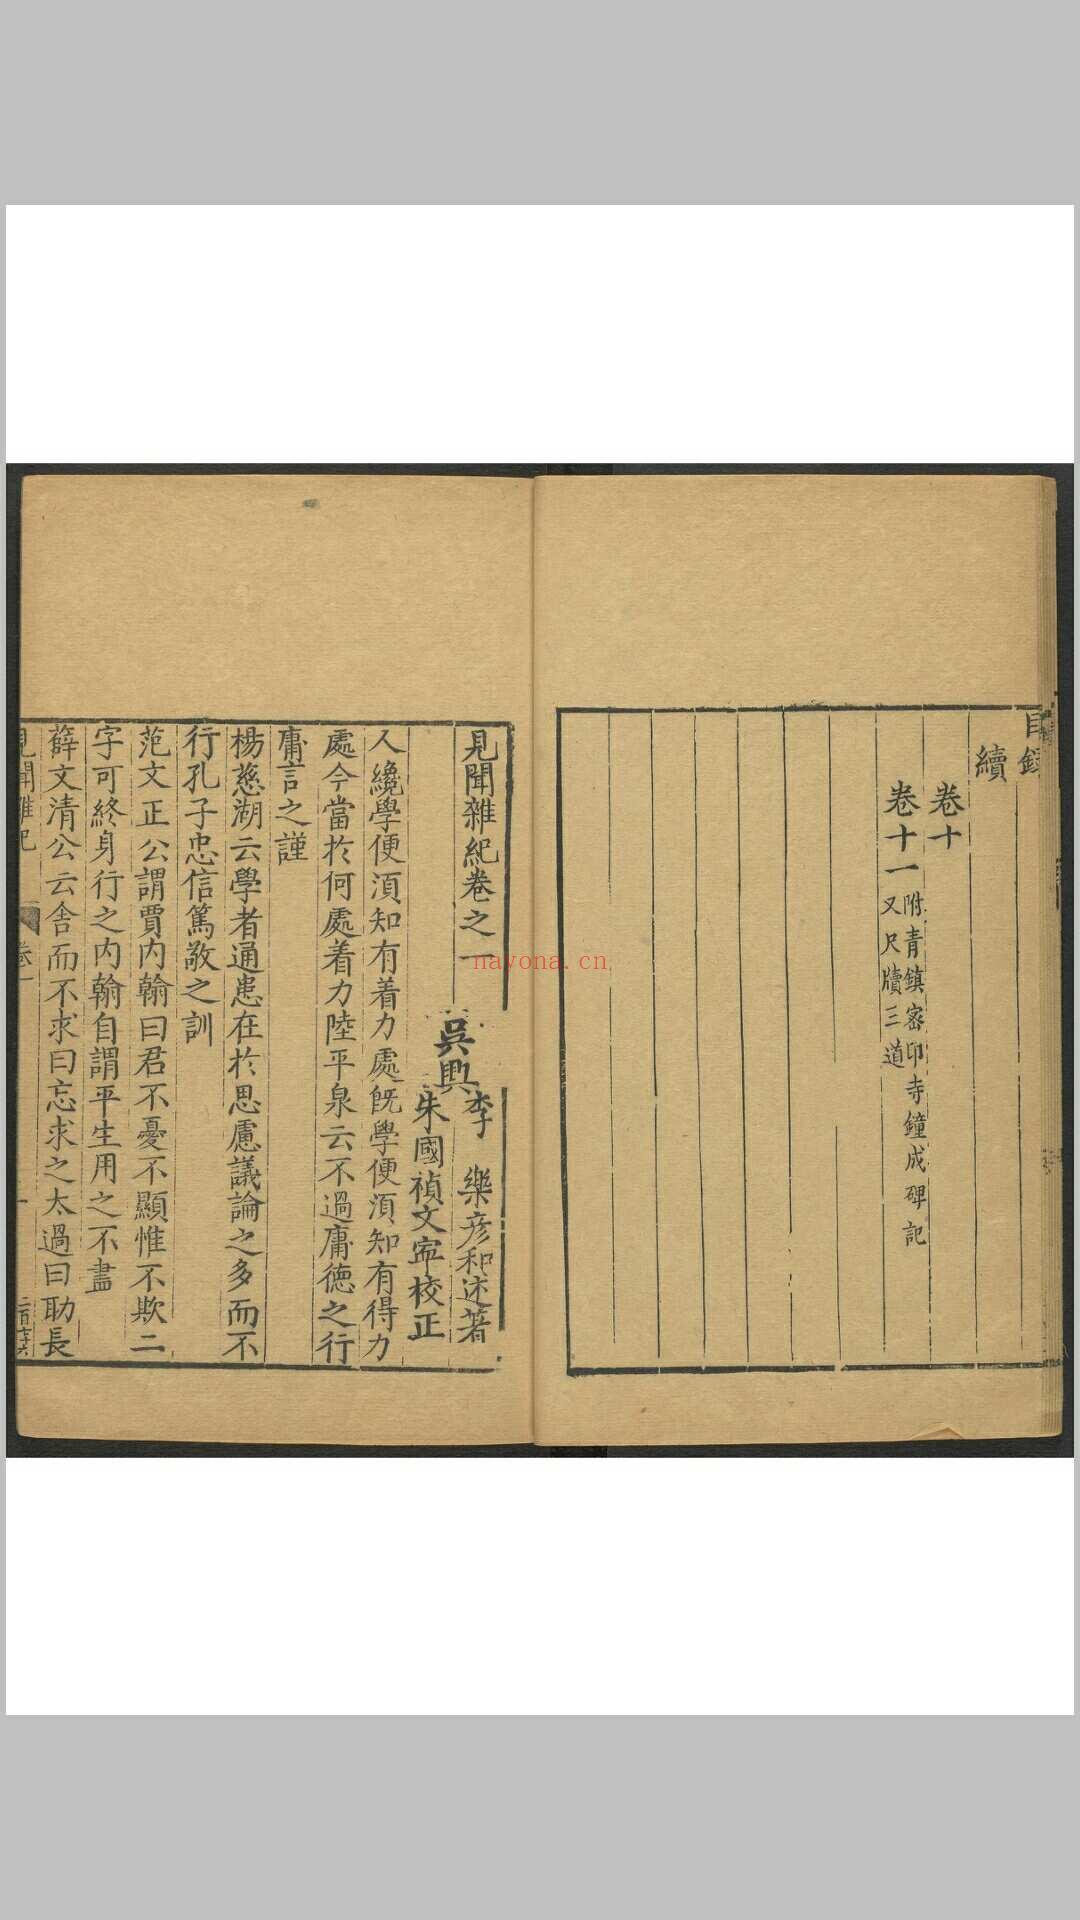 目錄
續
卷十
卷十一
附青鎮密印寺鐘成碑記
又尺牘三道
見聞雜紀卷之一
吳興
李樂彦和述著
朱國禎文寕校正
人纔學便湏知有着力處旣學便湏知有得力
處今當於何處着力陸平泉云不過庸德之行
庸言之謹
楊慈湖云學者通患在於思慮議論之多而不
行孔子忠信篤敬之訓
范文正公謂賈內翰曰君不憂不顯惟不欺二
字可終身行之內翰自謂平生用之不盡
薛文清公云舍而不求曰忘求之太過曰助長
見聞雜紀
卷一
一
nayona.cn